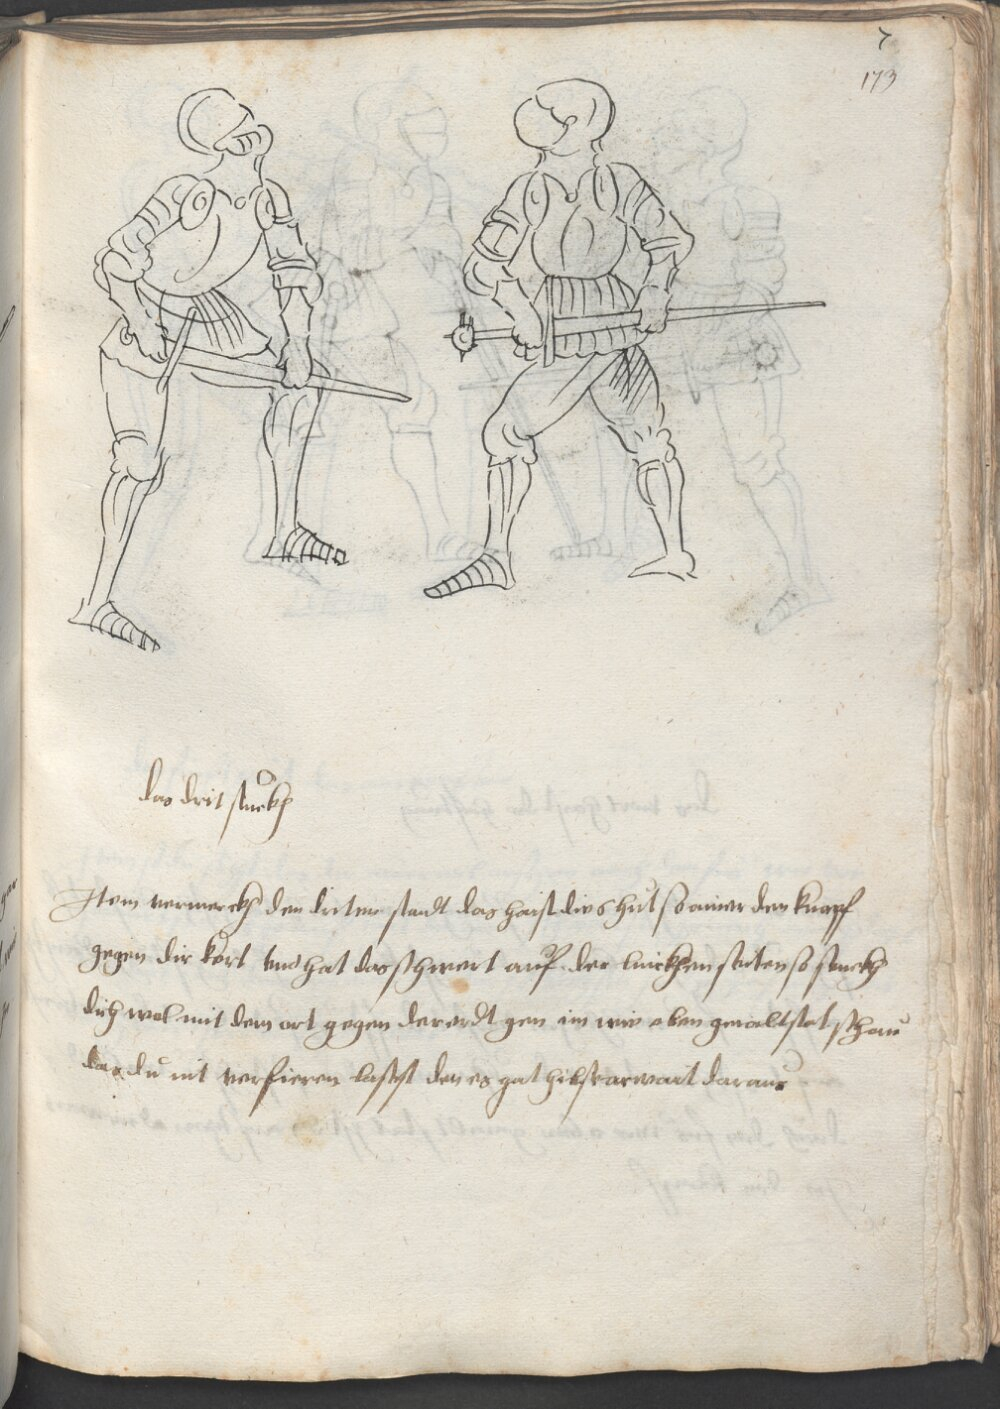 7
173
das drit stuckh
Item vermerckh den driten standt das haist die s hut so ainer den knopf
gegen dir kert und hat das schwert auf der linckhen seiten so senckh
dich wol mit dem ort gegen der erdt gen im wie oben gemalt stat schau
das du nit verfieren lassest den es gat hilf